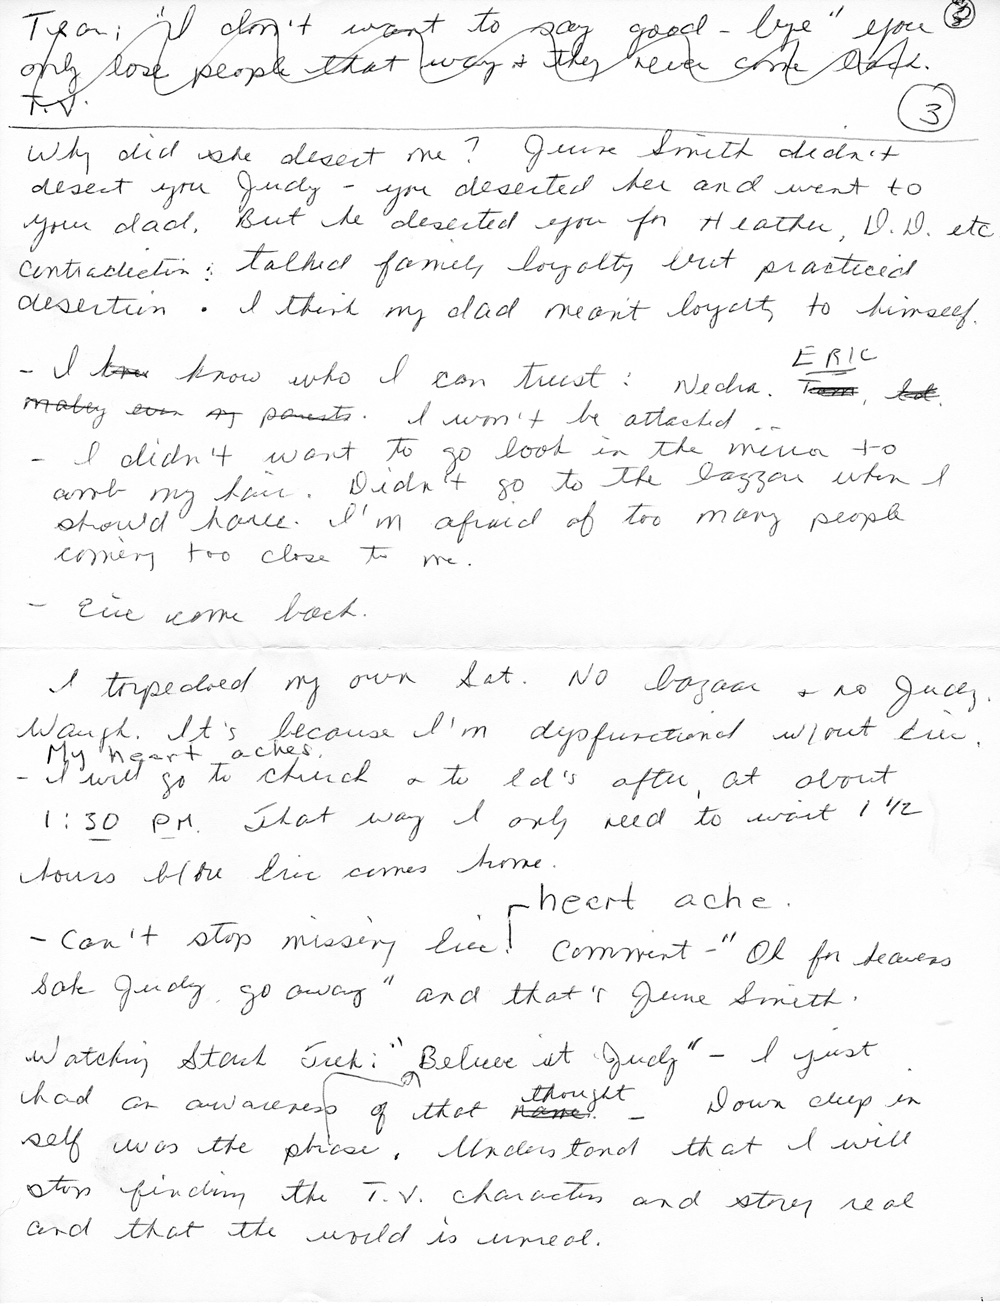 Tran: "I don't want to say good-bye" you
only lose people that way & they never come back.
T.V.
3
Why did she desert me? June Smith didn't
desert you Judy - you deserted her and went to
your dad. But he deserted you for Heather, D.D. etc
contradiction: talked family loyalty but practiced
desertion. I think my dad meant loyalty to himself.
ERIC
- I know who I can trust: Nedra.
I won't be attached ..
- I didn't want to go look in the mirror to
comb my hair. Didn't go to the bazzar when I
should have. I'm afraid of too many people
coming too close to me.
- Eric come back.
I torpedoed my own Sat. No bazaar & no Judy.
Waugh. It's because I'm dysfunctional w/out Eric.
My heart aches.
- I will go to church & to Ed's after, at about
1:30 PM. That way I only need to wait 1 1/2
hours b/ore Eric comes home.
heart ache.
- Can't stop missing Eric! Comment - "Oh for heavens
sake Judy, go away" and that's June Smith.
Watching Starh Trek: "Believe it Judy" - I just
had an awareness of that thought - Down deep in
self was the phrase. Understand that I will
stop finding the T.V. characters and story real
and that the world is unreal.